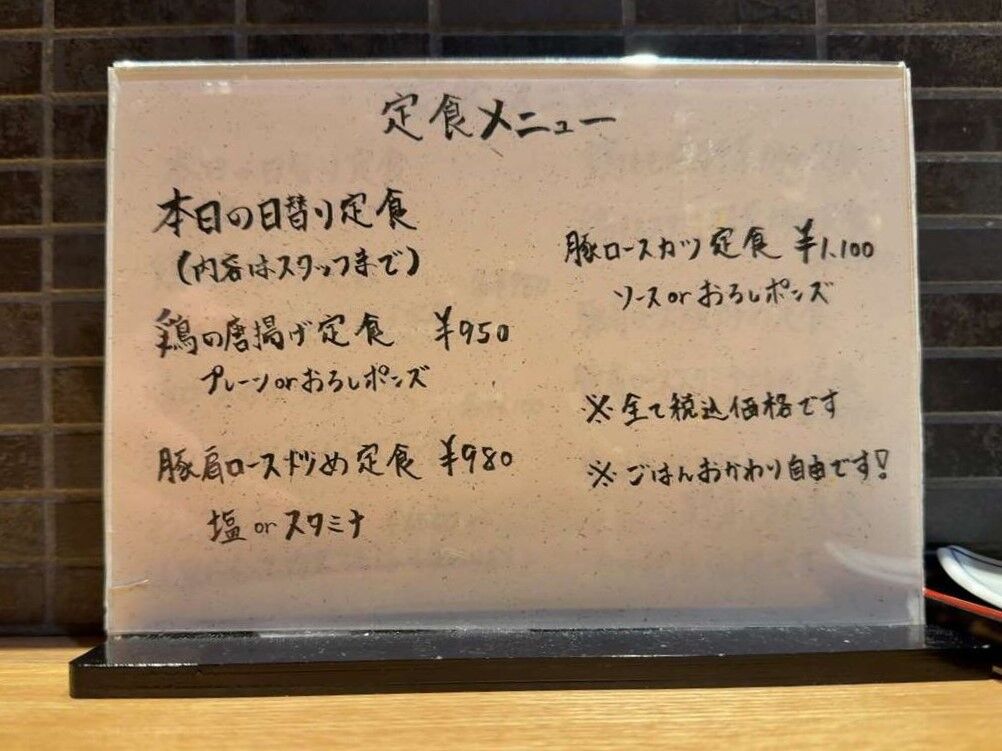 定食メニュー
本日の日替り定食
(内容はスタッフまで)
鶏の唐揚げ定食 ¥950
プレーンorおろしポンズ
豚肩ロース炒め定食 ¥980
塩orスタミナ
豚ロースカツ定食 ¥1,100
ソースorおろしポンズ
※全て税込価格です
※ごはんおかわり自由です!